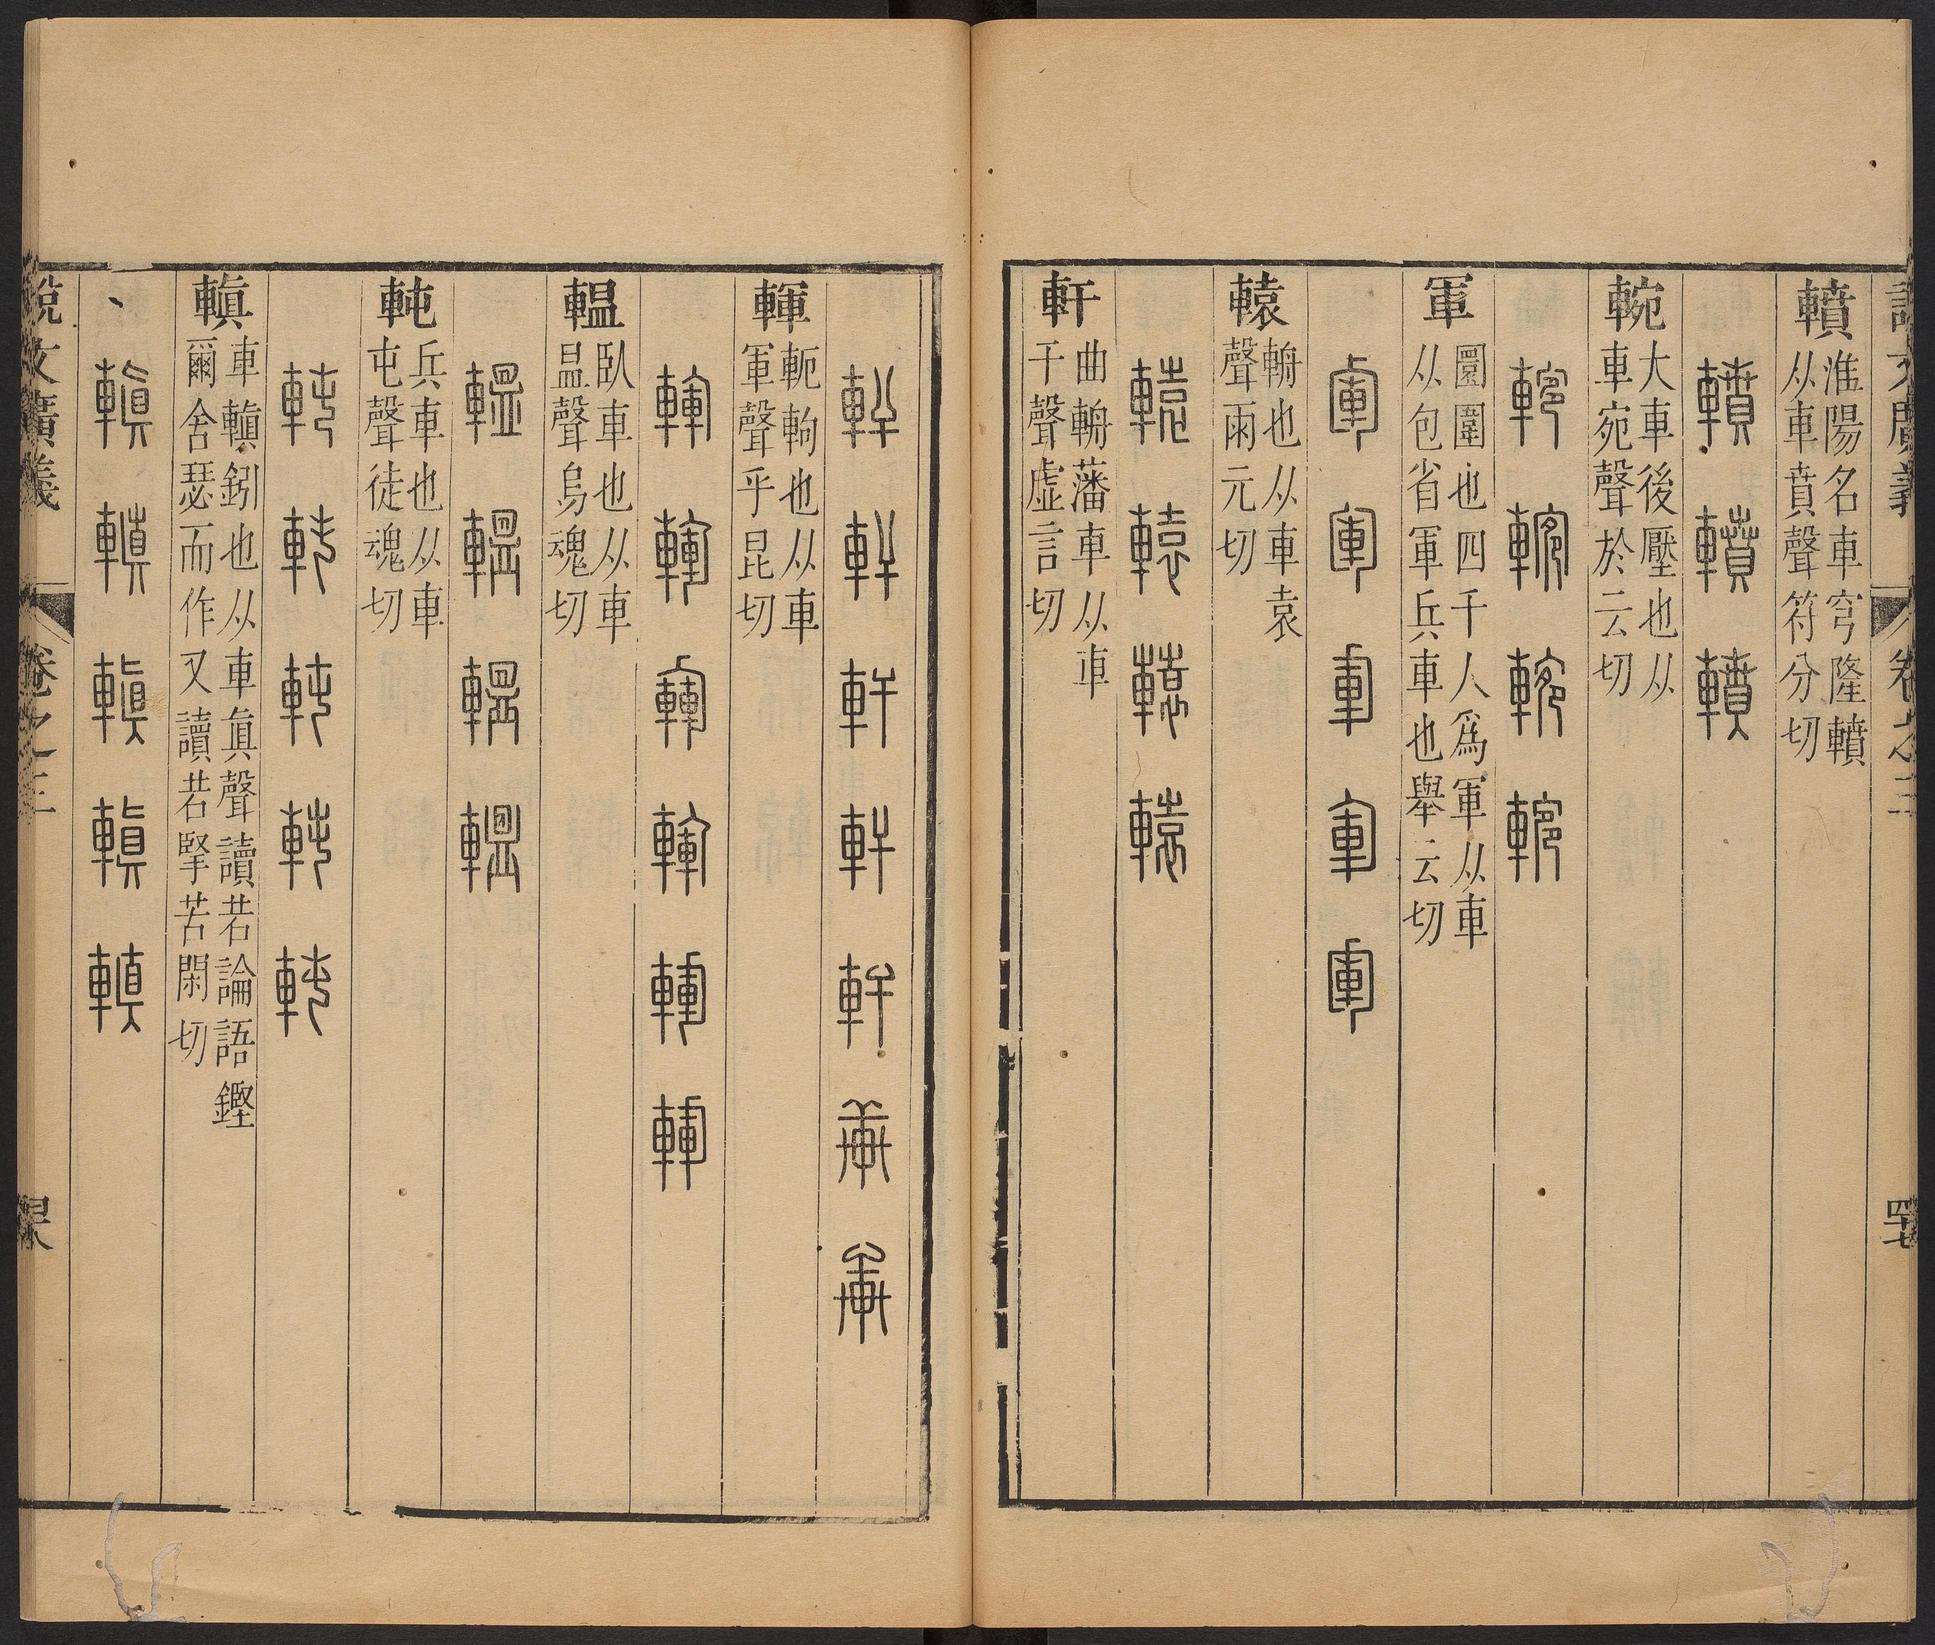 說文廣義
卷之三
四七
轒
淮陽名車穹隆轒
从車賁聲符分切
轒轒轒
䡝
大車後壓也从
車宛聲於云切
䡝䡝䡝䡝
軍
圜圍也四千人爲軍从車
从包省軍兵車也舉云切
軍軍軍軍軍
轅
輈也从車袁
聲雨元切
轅轅轅轅
軒
曲輈藩車从車
干聲虛言切
軒軒軒軒軒軒軒
輥
軛軥也从車
軍聲乎昆切
輥輥輥輥輥輥
轀
臥車也从車
昷聲烏魂切
轀轀轀轀
軘
兵車也从車
屯聲徒魂切
軘軘軘軘軘
䡩
車䡩釰也从車眞聲讀若論語鏗
爾舍瑟而作又讀若掔苦閑切
䡩䡩䡩䡩䡩
說文廣義
卷之三